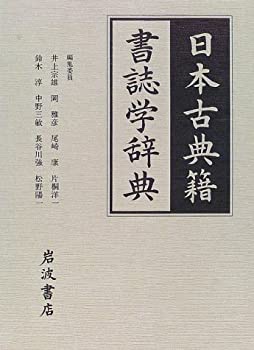 日本古典籍
書誌学辞典
編集委員
井上宗雄 岡 雅彦 尾崎 康 片桐洋一
鈴木 淳 中野三敏 長谷川強 松野陽一
岩波書店